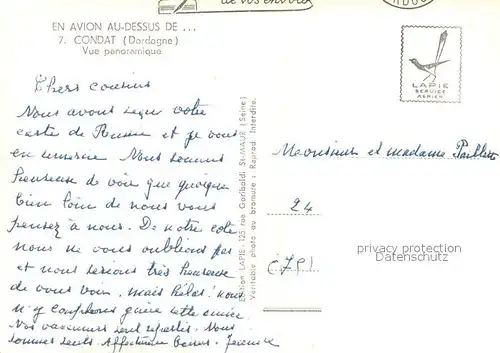 de vos envois
EN AVION AU-DESSUS DE ...
7. CONDAT (Dordogne)
Vue panoramique
LAPIE
SERVICE
AERIEN
Chers cousins
Nous avons reçu votre
carte de Rouen et je vous
en remercie Nous sommes
heureuse de voir que quoique
bien loin de nous vous
pensez à nous. De notre coté
nous ne vous oublions pas
et nous serions très heureuse
de vous voir. mais hélas! nous
n'y comptons guère cette année.
Vos vacanciers sont repartis. Nous
sommes seuls. Affectueux baisers.
Edition LAPIE, 125 rue Garibaldi St-MAUR (Seine)
Véritable photo au bromure : Reprod. Interdite.
Monsieur et madame
24
privacy protection
Datenschutz